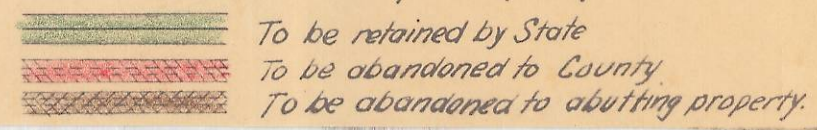 To be retained by State
To be abandoned to County
To be abandoned to abutting property.